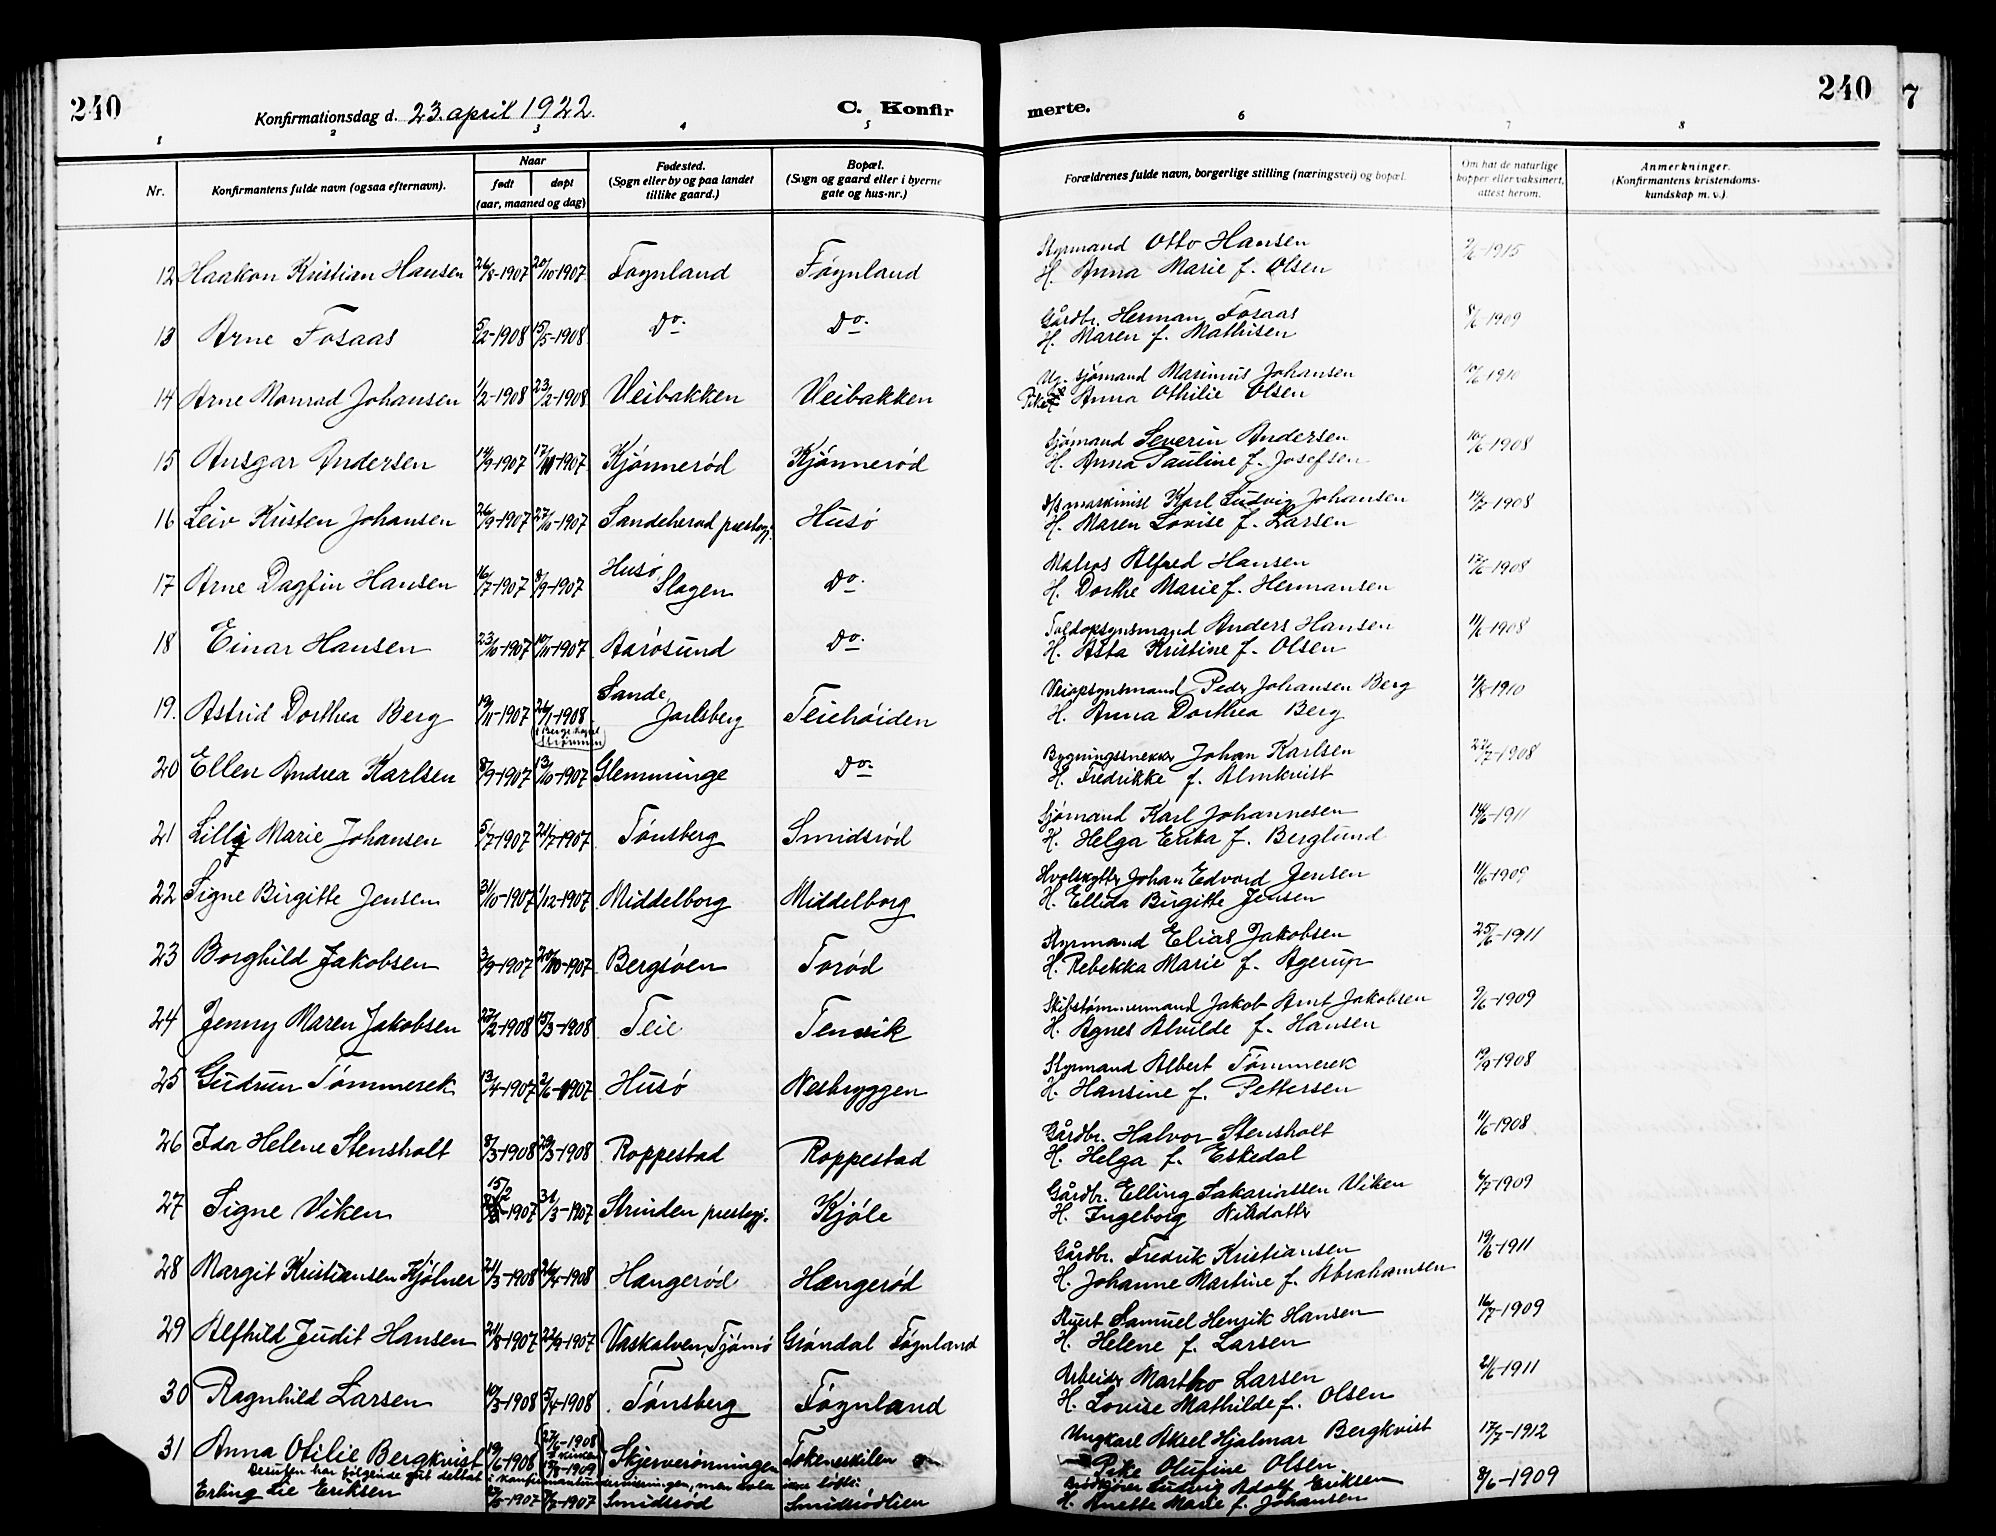 240
Konfirmationsdag d. 23. april 1922.
C. Konfir
merte.
240
7
1 2 3 4 5 6 7 8
Nr.
Konfirmantens fulde navn (ogsaa efternavn).
Naar
født
døpt
(aar, maaned og dag)
Fødested.
(Sogn eller by og paa landet
tillike gaard.)
Bopæl.
(Sogn og gaard eller i byerne
gate og hus-nr.)
Forældrenes fulde navn, borgerlige stilling (næringsvei) og bopæl.
Om hat de naturlige
kopper eller vaksinert,
attest herom.
Anmerkninger.
(Konfirmantens kristendoms-
kundskap m. v.)
Styrmand Otto Hansen
12 Haakon Kristian Hansen 26/8-1907 20/10-1907 Føynland Føynland 9/6-1915
H. Anna Marie f. Olsen
Gårdbr. Herman Fosaas
13 Arne Fosaas 5/2-1908 15/5-1908 Do. Do. 8/6-1909
H. Maren f. Mathisen
Ug. sjømand Marinius Johansen
14 Arne Monrad Johansen 1/2-1908 23/2-1908 Veibakken Veibakken 10/6-1910
Pike Anna Othilie Olsen
Sjømand Severin Andersen
15 Ansgar Andersen 14/9-1907 17/11-1907 Kjønnerød Kjønnerød 10/6-1908
H. Anna Pauline f. Josefsen
maskinist Karl Ludvig Johansen
16 Leiv Kristen Johansen 26/9-1907 27/10-1907 Sandeherad prestegj. Husø 14/7-1908
H. Maren Lovise f. Larsen
Matros Alfred Hansen
17 Arne Dagfin Hansen 16/7-1907 8/9-1907 Husø Slagen Do. 17/6-1908
H. Dorthe Marie f. Hermansen
Toldopsynsmand Anders Hansen
18 Einar Hansen 23/10-1907 10/11-1907 Aarøsund Do. 11/6-1908
H. Asta Kristine f. Olsen
Veiopsynsmand Peder Johansen Berg
19. Astrid Dorthea Berg 19/11-1907 26/1-1908 Sande Jarlsberg Teiehøiden 1/8-1910
Strømmen
H. Anna Dorthea Berg
Bygningssnekker Johan Karlsen
20 Ellen Andrea Karlsen 8/9-1907 13/10-1907 Glemminge Do. 22/7-1908
H. Fredrikke f. Almkvist
Sjømand Karl Johannesen
21 Lilly Marie Johansen 5/7-1907 21/7-1907 Tønsberg Smidsrød 14/6-1911
H. Helga Erika f. Berglund
Hvalskytter Johan Edvard Jensen
22 Signe Birgitte Jensen 31/10-1907 1/12-1907 Middelborg Middelborg 11/6-1909
H. Ellida Birgitte Jensen
Styrmand Elias Jakobsen
23 Borghild Jakobsen 3/9-1907 20/10-1907 Bergsøen Torød 25/6-1911
H. Rebekka Marie f. Agerup
Skibstømmermand Jakob Arnt Jakobsen
24 Jenny Maren Jakobsen 22/2-1908 15/3-1908 Teie Tenvik 9/6-1909
H. Agnes Alvilde f. Hansen
Styrmand Albert Tømmerek
25 Gudrun Tømmerek 13/4-1907 2/6-1907 Husø Nesbryggen 19/9-1908
H. Hansine f. Pettersen
Gårdbr. Halvor Stensholt
26 Ida Helene Stensholt 8/3-1908 29/3-1908 Roppestad Roppestad 11/6-1908
H. Helga f. Eskedal
Gårdbr. Elling Sakariassen Viken
27 Signe Viken 15/2-1907 31/3-1907 Strinden prestegj. Kjøle 6/7-1909
H. Ingeborg Nilsdatter
Gårdbr. Fredrik Kristiansen
28 Margit Kristiansen Kjølner 21/3-1908 26/4-1908 Hængerød Hængerød 19/6-1911
H. Johanne Martine f. Abrahamsen
Stuert Samuel Henrik Hansen
29 Alfhild Judit Hansen 21/8-1907 22/9-1907 Vaskalven, Tjømø Grøndal Føynland 16/7-1909
H. Helene f. Larsen
Arbeider Larsen
30 Ragnhild Larsen 10/3-1908 5/4-1908 Tønsberg Føynland 21/6-1911
H. Lovise Mathilde f. Olsen
Ungkarl Aksel Hjalmar Bergkvist
31 Anna Otilie Bergkvist 19/6-1908 Skjerverønningen 17/7-1912
Pike Olufine Olsen
Desuten har følgende gut deltat i konfirmantundervisningen, men
Ludvig Adolf Eriksen
Erling Lie Eriksen Smidsrød Smidsrødlien 8/6-1909
H. Anette Marie f. Johansen